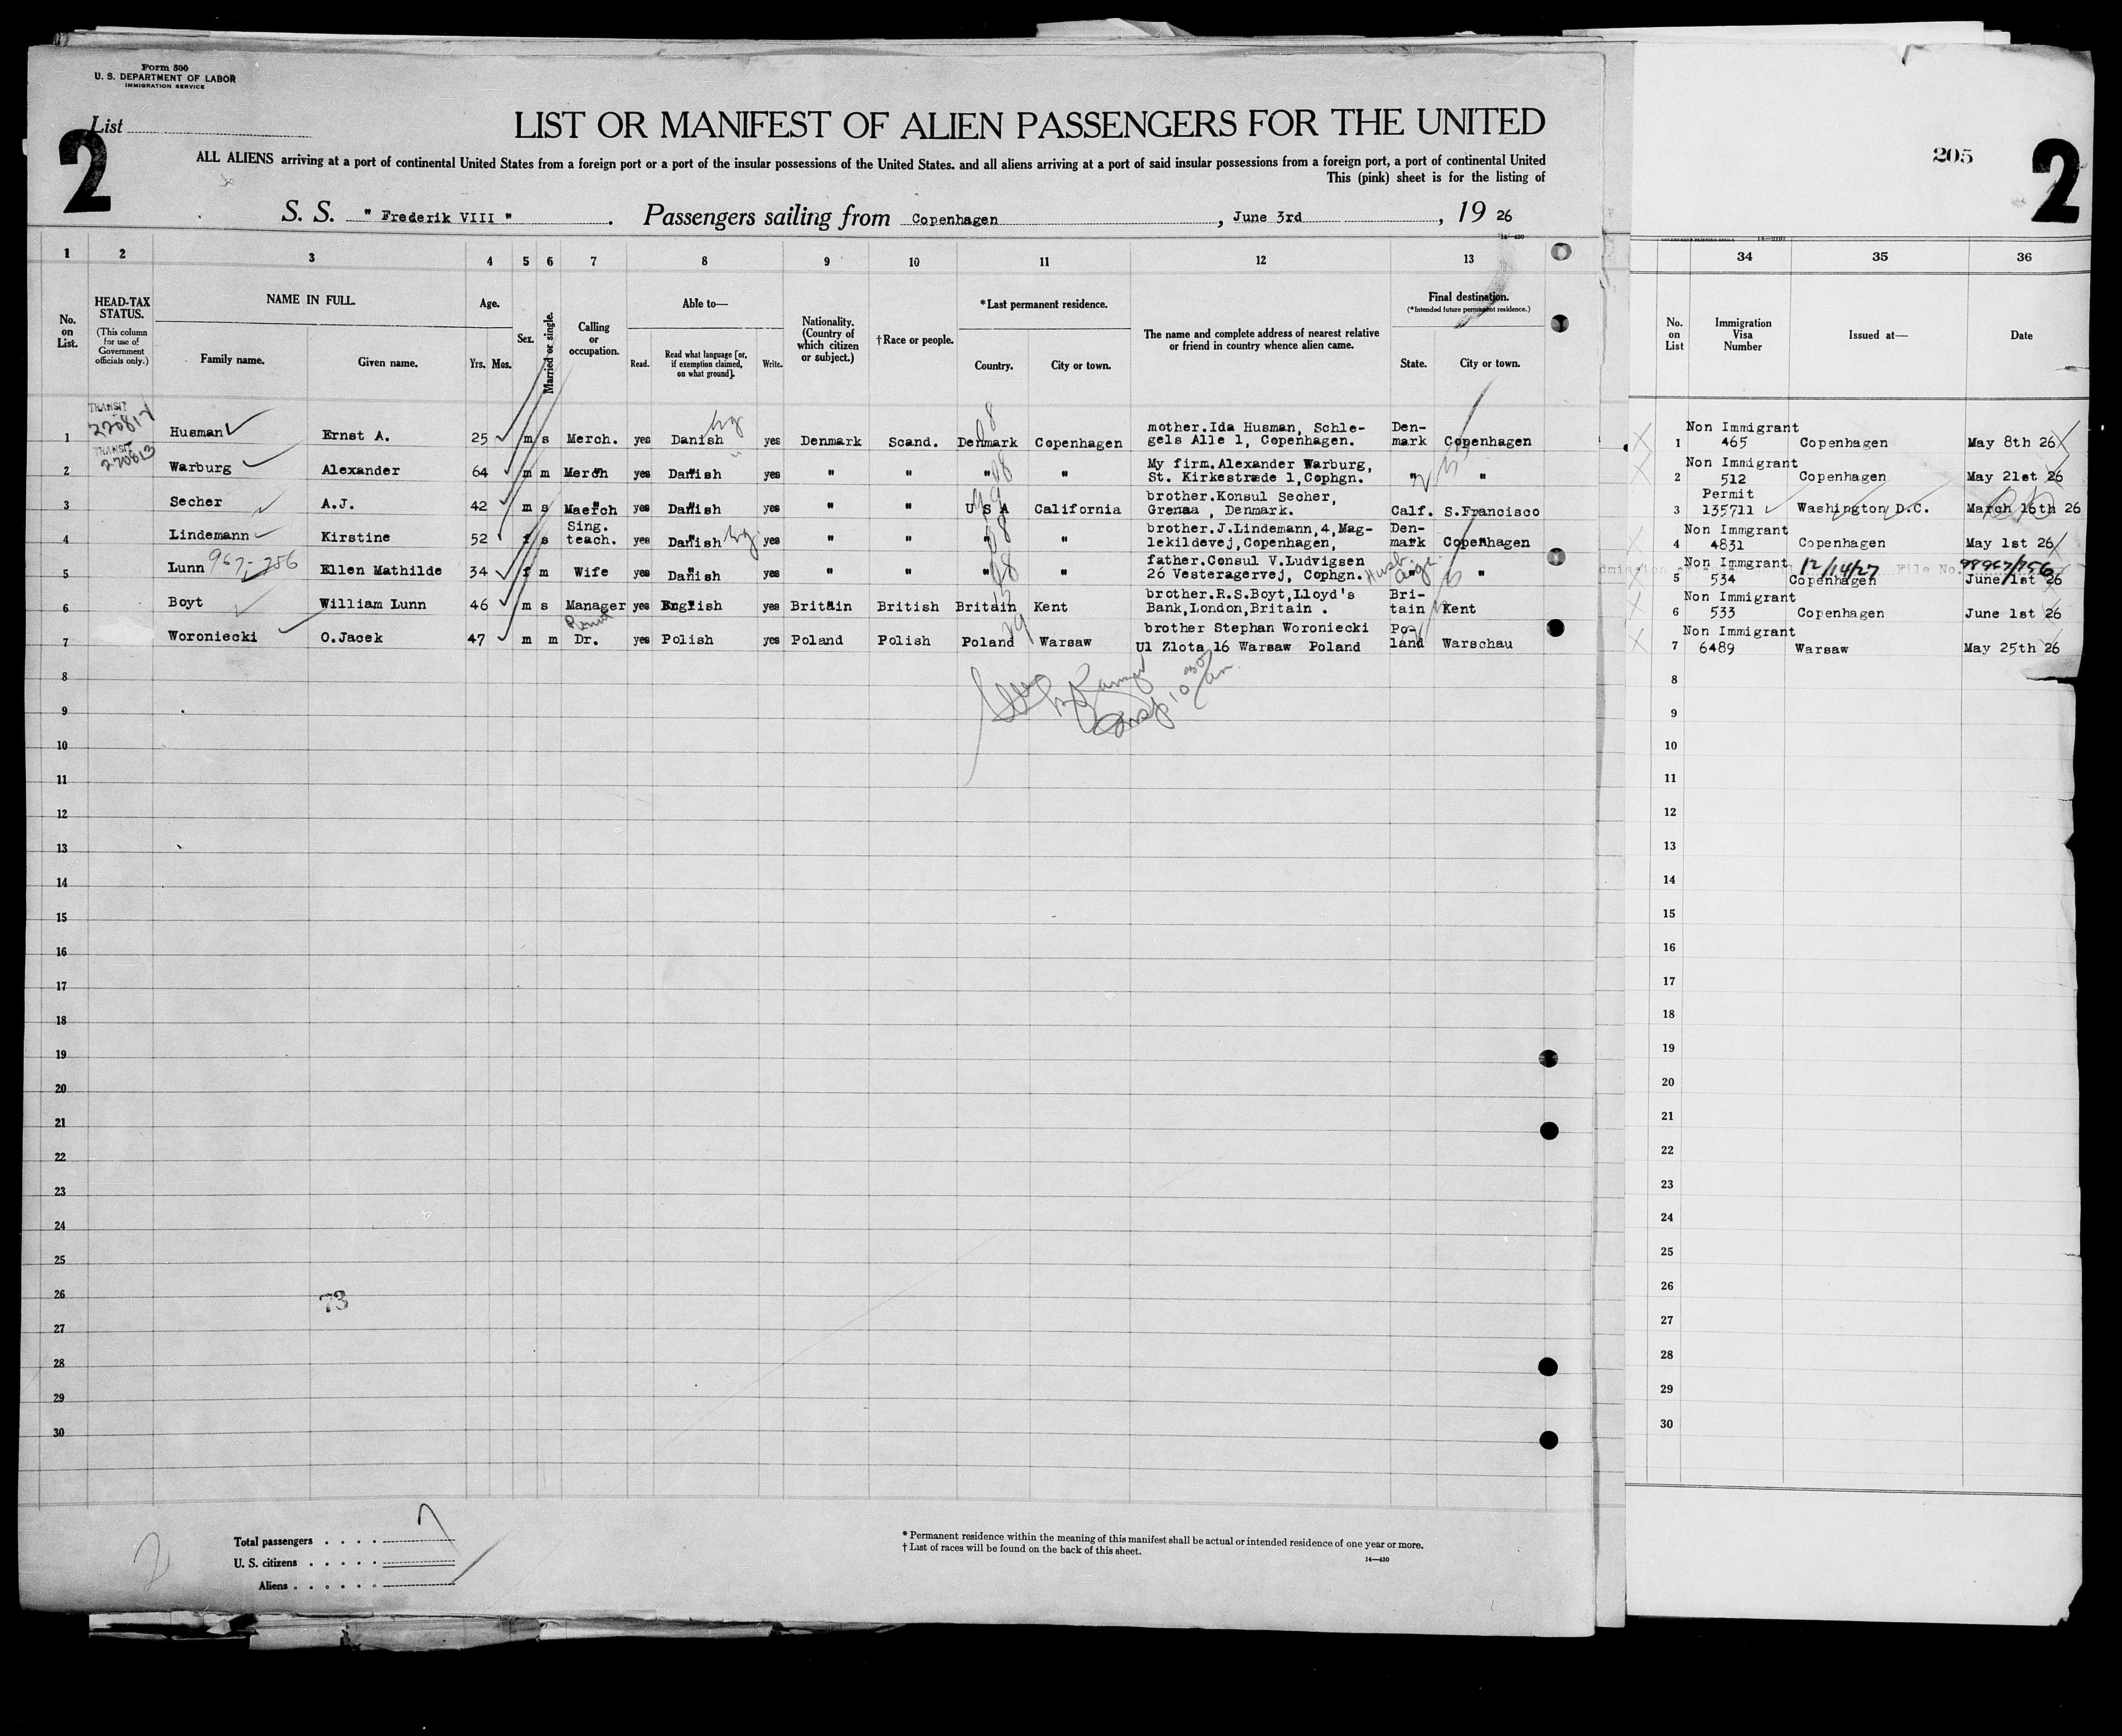 Form 500
U. S. DEPARTMENT OF LABOR
IMMIGRATION SERVICE
List
2
LIST OR MANIFEST OF ALIEN PASSENGERS FOR THE UNITED
ALL ALIENS arriving at a port of continental United States from a foreign port or a port of the insular possessions of the United States, and all aliens arriving at a port of said insular possessions from a foreign port, a port of continental United
This (pink) sheet is for the listing of
S. S. " Frederik VIII " . Passengers sailing from Copenhagen , June 3rd , 19 26
14—430
205
2
1 2 3 4 5 6 7 8 9 10 11 12 13
34 35 36
No. on List.
HEAD-TAX STATUS.
(This column for use of Government officials only.)
NAME IN FULL.
Family name. Given name.
Age.
Yrs. Mos.
Sex.
Married or single.
Calling or occupation.
Able to—
Read. Read what language [or, if exemption claimed, on what ground]. Write.
Nationality. (Country of which citizen or subject.)
†Race or people.
*Last permanent residence.
Country. City or town.
The name and complete address of nearest relative or friend in country whence alien came.
Final destination.
(*Intended future permanent residence.)
State. City or town.
No. on List
Immigration Visa Number
Issued at—
Date
TRANSIT
TRANSIT
220813
1 Husman Ernst A. 25 m s Merch. yes Danish yes Denmark Scand. Denmark Copenhagen mother.Ida Husman, Schle-
gels Alle 1, Copenhagen. Den-
mark Copenhagen
2 Warburg Alexander 64 m m Merch yes Danish yes " " " " My firm.Alexander Warburg,
St. Kirkestræde 1,Cophgn. " "
3 Secher A.J. 42 m s Merch yes Danish yes " " U S A California brother.Konsul Secher,
Grenaa , Denmark. Calf. S.Francisco
4 Lindemann Kirstine 52 f s Sing.
teach. yes Danish yes " " " " brother.J.Lindemann,4,Mag-
lekildevej,Copenhagen, Den-
mark Copenhagen
5 Lunn 967-756 Ellen Mathilde 34 f m Wife yes Danish yes " " " " father.Consul V.Ludvigsen
26 Vesteragervej, Cophgn. " "
6 Boyt William Lunn 46 m s Manager yes English yes Britain British Britain Kent brother.R.S.Boyt,Lloyd's
Bank,London,Britain . Bri-
tain Kent
7 Woroniecki O.Jacek 47 m m Dr. yes Polish yes Poland Polish Poland Warsaw brother Stephan Woroniecki
Ul Zlota 16 Warsaw Poland Po-
land Warschau
Non Immigrant
1 465 Copenhagen May 8th 26
Non Immigrant
2 512 Copenhagen May 21st 26
Permit
3 135711 Washington D.C. March 16th 26
Non Immgrant
4 4831 Copenhagen May 1st 26
Non Immgrant 12/14/27 File No. 98967/756
5 534 Copenhagen June 1st 26
Non Immigrant
6 533 Copenhagen June 1st 26
Non Immigrant
7 6489 Warsaw May 25th 26
8 8
9 9
10 10
11 11
12 12
13 13
14 14
15 15
16 16
17 17
18 18
19 19
20 20
21 21
22 22
23 23
24 24
25 25
26 26
73
27 27
28 28
29 29
30 30
Total passengers . . . . 7
U. S. citizens . . . . .
Aliens . . . . . .
2
* Permanent residence within the meaning of this manifest shall be actual or intended residence of one year or more.
† List of races will be found on the back of this sheet.
14—430